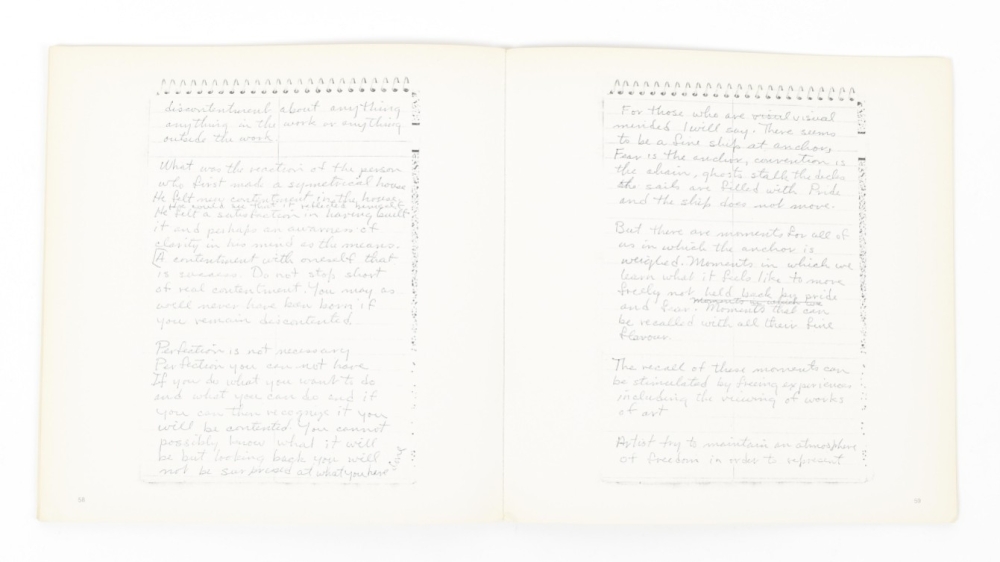 discontentment about anything
anything in the work or anything
outside the work
What was the reaction of the person
who first made a symetrical house
He felt new contentment in the house
He could see that it reflected himself
He felt a satisfaction in having built
it and perhaps an awarness of
clarity in his mind as the means.
A contentment with oneself that
is success. Do not stop short
of real contentment. You may as
well never have been born if
you remain discontented.
Perfection is not necessary
Perfection you can not have
If you do what you want to do
and what you can do and if
you can then recognize it you
will be contented. You cannot
possibly know what it will
be but looking back you will
not be surprised at what you have done
58
For those who are visual
minded I will say. There seems
to be a fine ship at anchor,
Fear is the anchor, convention is
the chain, ghosts stalk the decks
the sails are filled with Pride
and the ship does not move.
But there are moments for all of
us in which the anchor is
weighed. Moments in which we
learn what it feels like to move
freely not held back by pride
and fear. Moments that can
be recalled with all their fine
flavour.
The recall of these moments can
be stimulated by freeing experiences
including the viewing of works
of art
Artist try to maintain an atmosphere
of freedom in order to represent
59